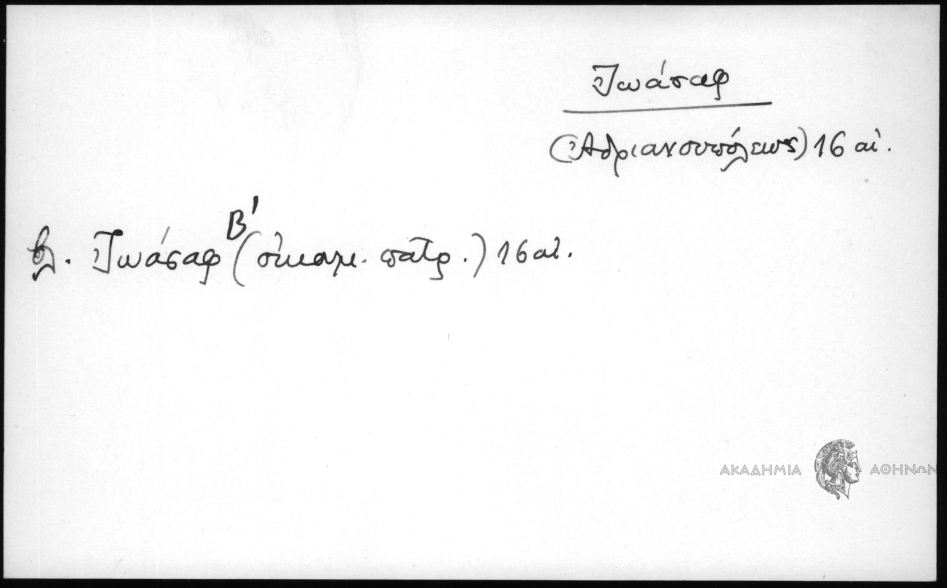 Ἰωάσαφ
(Ἀδριανουπόλεως) 16 αἰ.
βλ. Ἰωάσαφ Β' (οἰκουμ. πατρ.) 16 αἰ.
ΑΚΑΔΗΜΙΑ ΑΘΗΝΩΝ